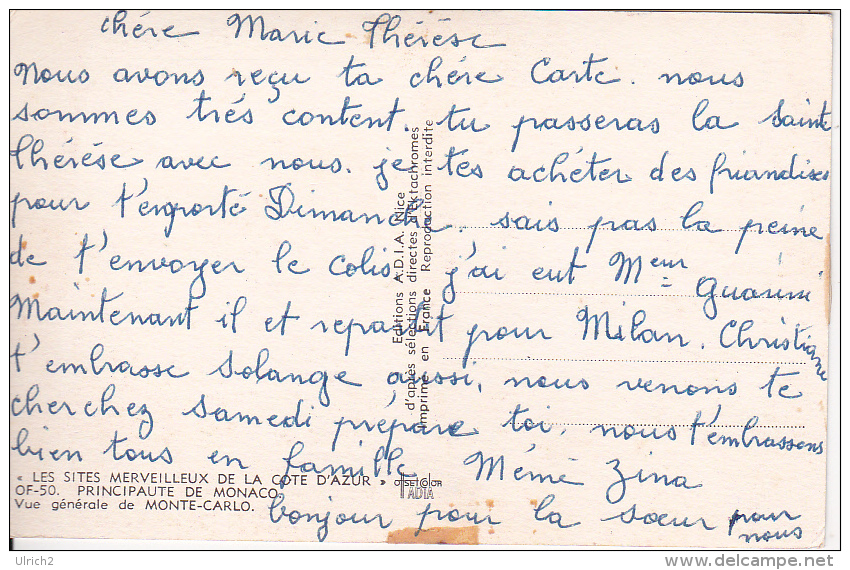 chére Marie Thérése
Nous avons reçu ta chére Carte. nous
sommes trés content. tu passeras la Sainte
Thérése avec nous. je tes achéter des friandises
pour t'emporté Dimanche. sais pas la peine
de t'envoyer le colis. j'ai eut Meur Guarini
Maintenant il et repartit pour Milan. Christiane
t'embrasse Solange aussi, nous venons te
cherchez Samedi prépare toi. nous t'embrassons
bien tous en famille Mémé Zina
bonjour pour la sœur pour
nous
« LES SITES MERVEILLEUX DE LA COTE D'AZUR »
OF-50. PRINCIPAUTE DE MONACO.
Vue générale de MONTE-CARLO.
Editions A.D.I.A. Nice
d'après sélections directes d'Ektachromes
Imprimé en France Reproduction interdite
OFFSETCOLOR
ADIA
Ulrich2
www.delcampe.net